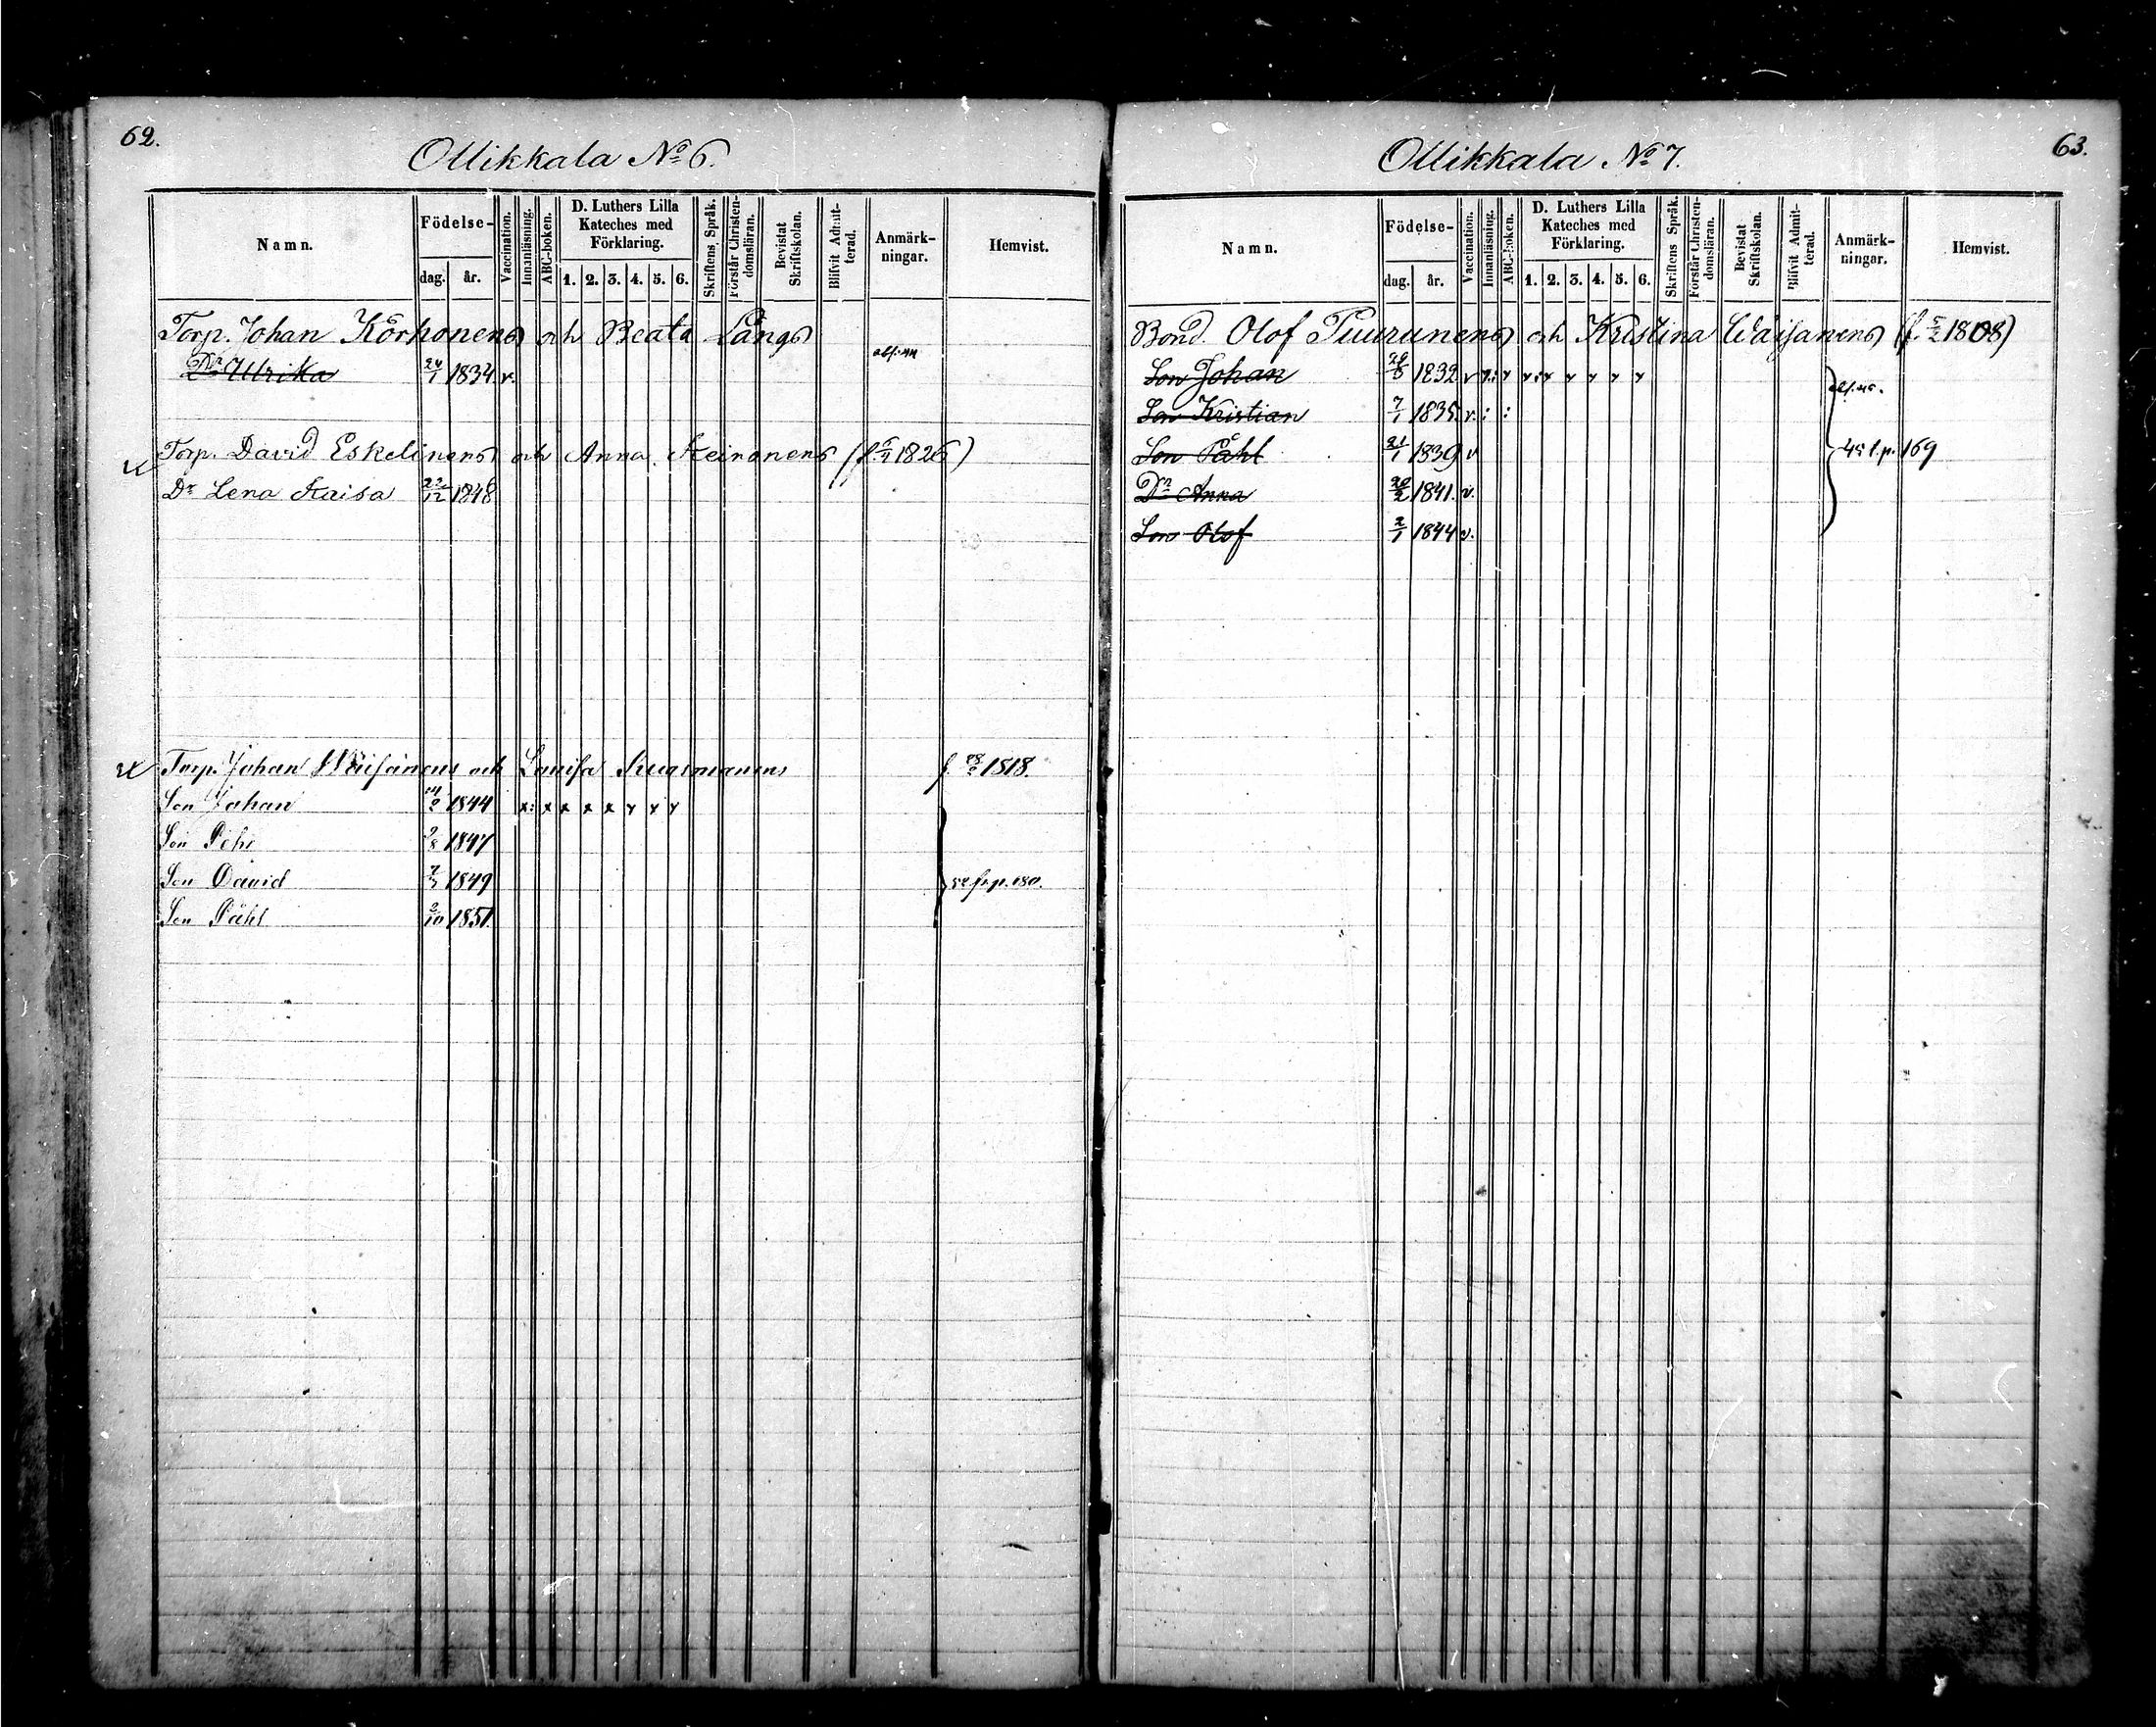 62.
Ollikkala No 6.
Namn. Födelse- dag. år. Vaccination. Innanläsning. ABC-boken. D. Luthers Lilla Kateches med Förklaring. 1. 2. 3. 4. 5. 6. Skriftens Språk. Förstår Christendomsläran. Bevistat Skriftskolan. Blifvit Admitterad. Anmärkningar. Hemvist.
Torp. Johan Korhonens och Beata Långs
Dr Ulrika 24/1 1834 v.
Torp. David Eskelinens och Anna Keinonens 1826)
Dr Lena Kaisa 22/12 1848
Torp. Johan Wäisänens och Lovisa 1818.
Son Johan 1844 x: x x x x y y y
Son Pehr 1847
Son David 1849 52 f. p. 180.
Son Påhl 2/10 1851.
63.
Ollikkala No 7.
Namn. Födelse- dag. år. Vaccination. Innanläsning. ABC-boken. D. Luthers Lilla Kateches med Förklaring. 1. 2. 3. 4. 5. 6. Skriftens Språk. Förstår Christendomsläran. Bevistat Skriftskolan. Blifvit Admitterad. Anmärkningar. Hemvist.
Bond. Olof Puurunens och Kristina Wäisänens (f. 5/2 1808)
Son Johan 1832 v
Son Kristian 7/1 1835 v. : :
Son Påhl 21/1 1839 v 45 f. p. 169
Dr Anna 20/2 1841. v.
Son Olof 2/1 1844 v.